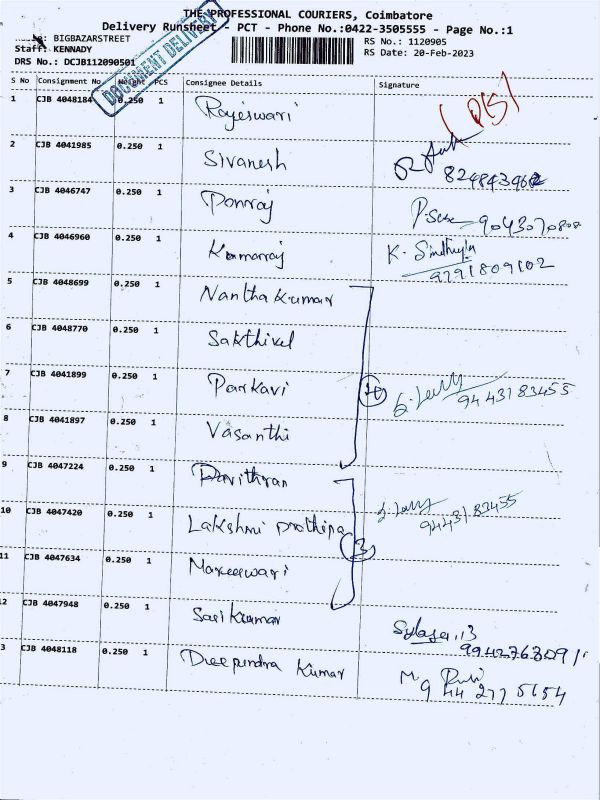 THE PROFESSIONAL COURIERS, Coimbatore
Delivery Runsheet - PCT - Phone No.:0422-3505555 - Page No.:1
BIGBAZARSTREET
RS No.: 1120905
Staff: KENNADY
RS Date: 20-Feb-2023
DRS No.: DCJB112090501
DOCUMENT DELIVERY
S No Consignment No Weight PCS Consignee Details Signature
1 CJB 4048184 0.250 1 Rajeswari
2 CJB 4041985 0.250 1 Sivanesh
3 CJB 4046747 0.250 1 Ponraj 9043070808
4 CJB 4046960 0.250 1 Kamarraj K. Sindhuja
9791809102
5 CJB 4048699 0.250 1 Nantha Kumar
6 CJB 4048770 0.250 1 Sakthivel
7 CJB 4041899 0.250 1 Parkavi 9443183455
8 CJB 4041897 0.250 1 Vasanthi
9 CJB 4047224 0.250 1 Pavithran
10 CJB 4047420 0.250 1 Lakshmi prathipa 9443183455
3
11 CJB 4047634 0.250 1 Mareeswari
12 CJB 4047948 0.250 1 Sasi Kumar
3 CJB 4048118 0.250 1 Deependra Kumar M.
9442775654